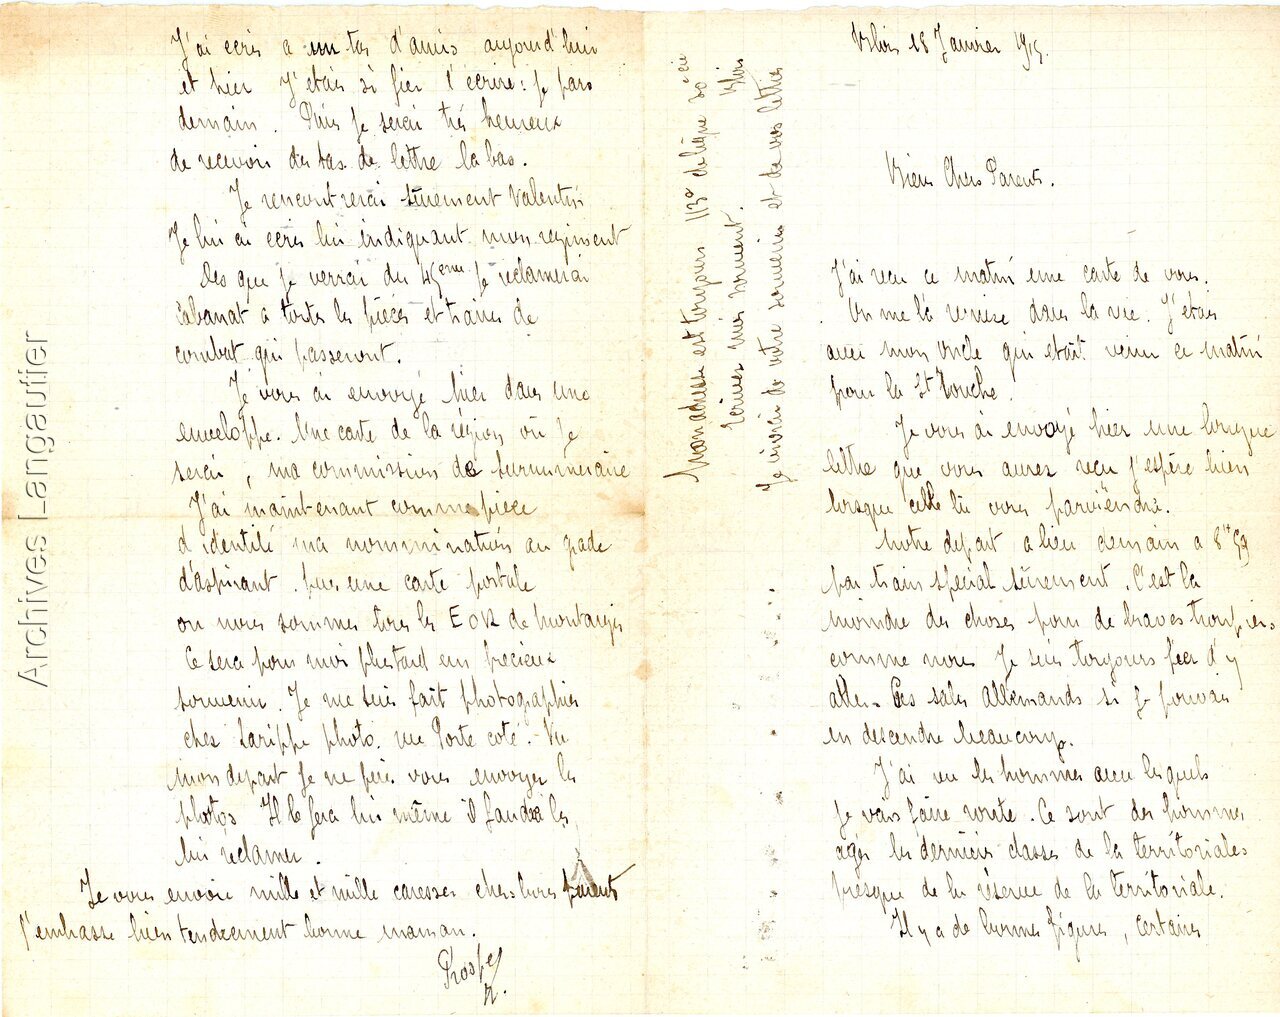 Blois 18 Janvier 1915.
Biens Chers Parents.
J'ai recu ce matin une carte de vous.
On me l'a remise dans la rue. J'étais
avec mon oncle qui etait venu ce matin
pour la St
Je vous ai envoyé hier une longue
lettre que vous aurez recu j'espère bien
lorsque celle là vous parviendra.
Notre depart a lieu demain a 8 h 59
par train spécial sûrement. C'est la
moindre des choses pour de braves troupiers
comme nous. Je suis toujours fier d'y
aller. Ces sales Allemands si je pouvais
en descendre beaucoup.
J'ai vu les hommes avec lesquels
je vais faire route. Ce sont des hommes
agés les dernières classes de la territoriale
presque de la réserve de la territoriale.
Il y a de bonnes figures, certains
J'ai ecris a un tas d'amis aujourd'hui
et hier J'étais si fier d'écrire : je pars
demain. Puis je serai très heureux
de recevoir des tas de lettre la bas.
Je rencontrerai sûrement Valentin
Je lui ai ecris lui indiquant mon regiment
Des que je verrai du 45eme je reclamerai
Cabanat a toutes les pièces et trains de
combat qui passeront.
Je vous ai envoyé hier dans une
enveloppe. Une carte de la région où je
serai, ma commission de surnumeraire
J'ai maintenant comme pièce
d'identité ma nommination au grade
d'aspirant. puis une carte postale
ou nous sommes tous les EOR de Montargis
Ce sera pour moi plustard un precieux
souvenir. Je me suis fait photographier
chez Larippe photo. rue Porte coté. Vu
mon depart je ne puis vous envoyer les
photos Il le fera lui même il faudra les
lui reclamer.
Je vous envoie mille et mille caresses chers bons parents
J'embrasse bien tendrement bonne maman.
Prosper
Mon adresse est toujours 113e de ligne 30e cie
Ecrivez moi souvent. Blois
Je vivrai de votre souvenir et de vos lettres
Archives Langautier